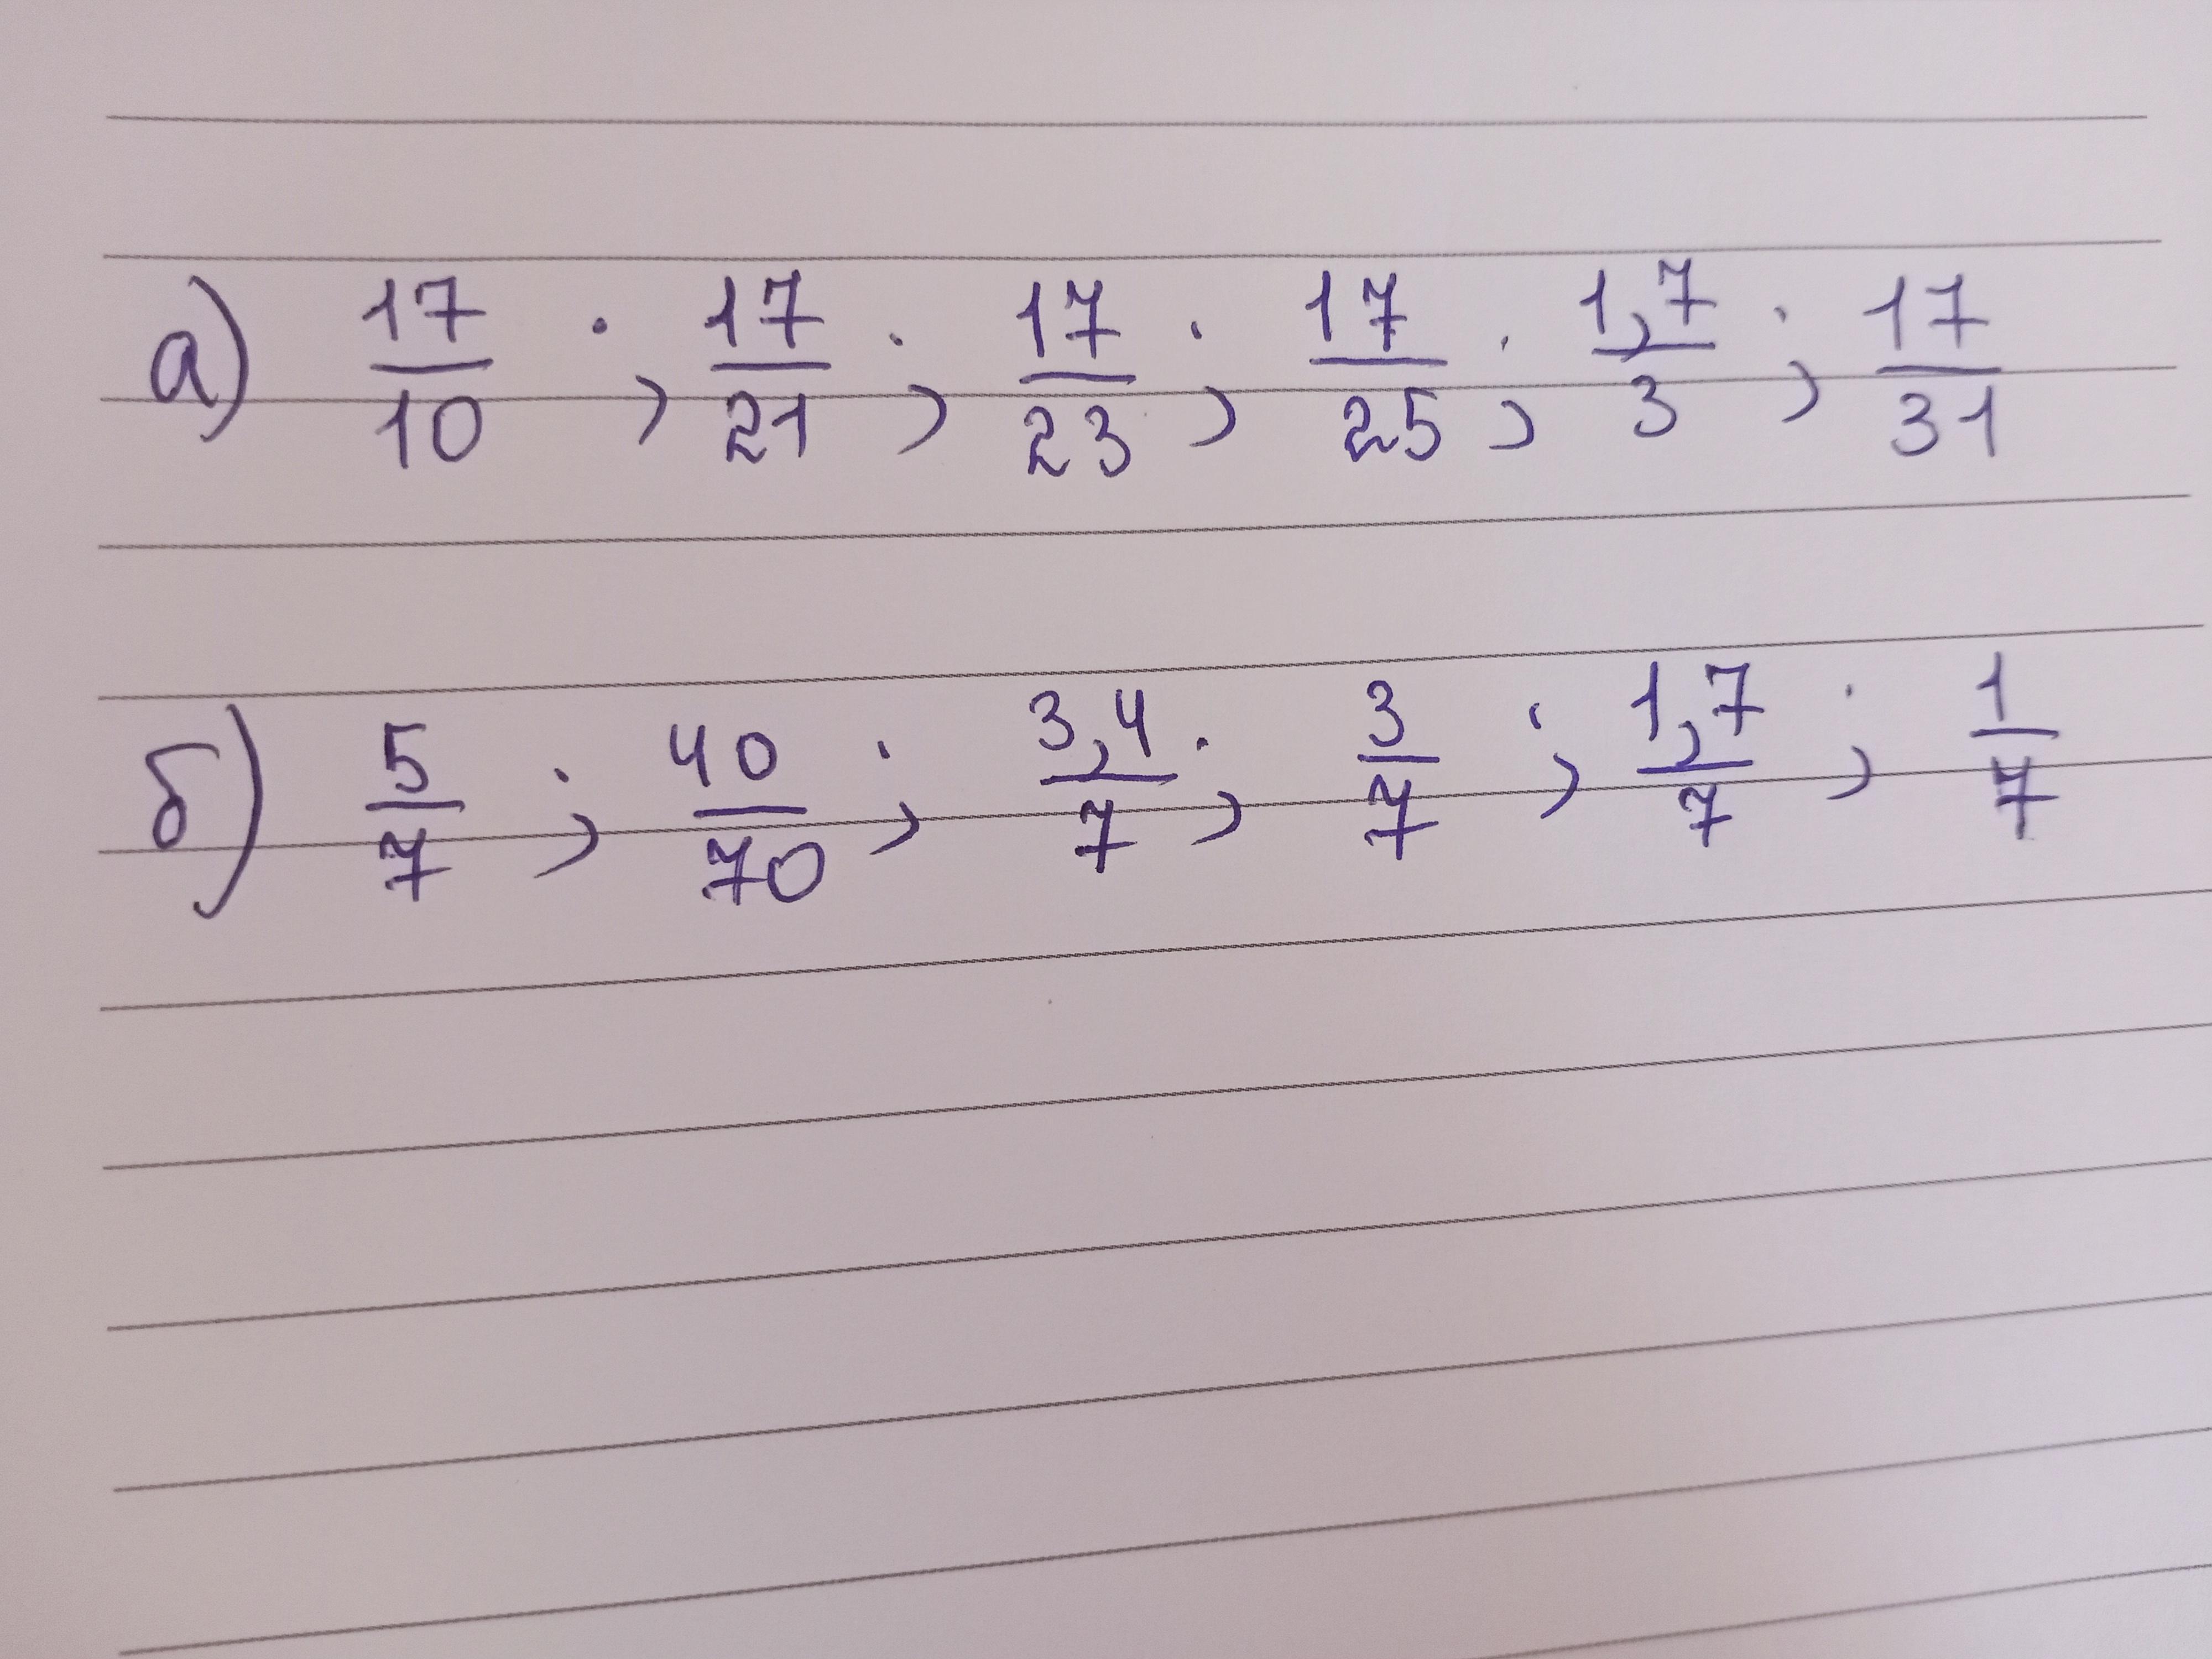 а) 17/10 ; 17/21 ; 17/23 ; 17/25 ; 1,7/3 ; 17/31
б) 5/7 ; 40/70 ; 3,4/7 ; 3/7 ; 1,7/7 ; 1/7